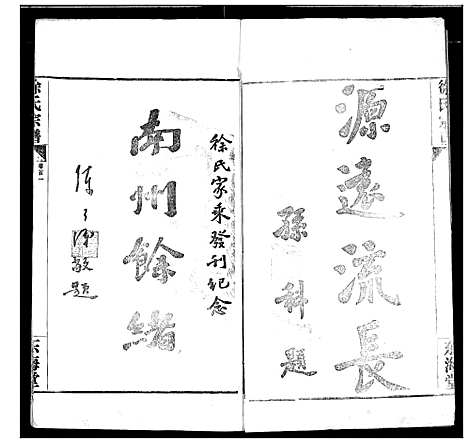 源遠流長
孫科題
徐氏家乘發刊紀念
南州餘緒
敬題
徐氏宗譜
卷首一
東海堂